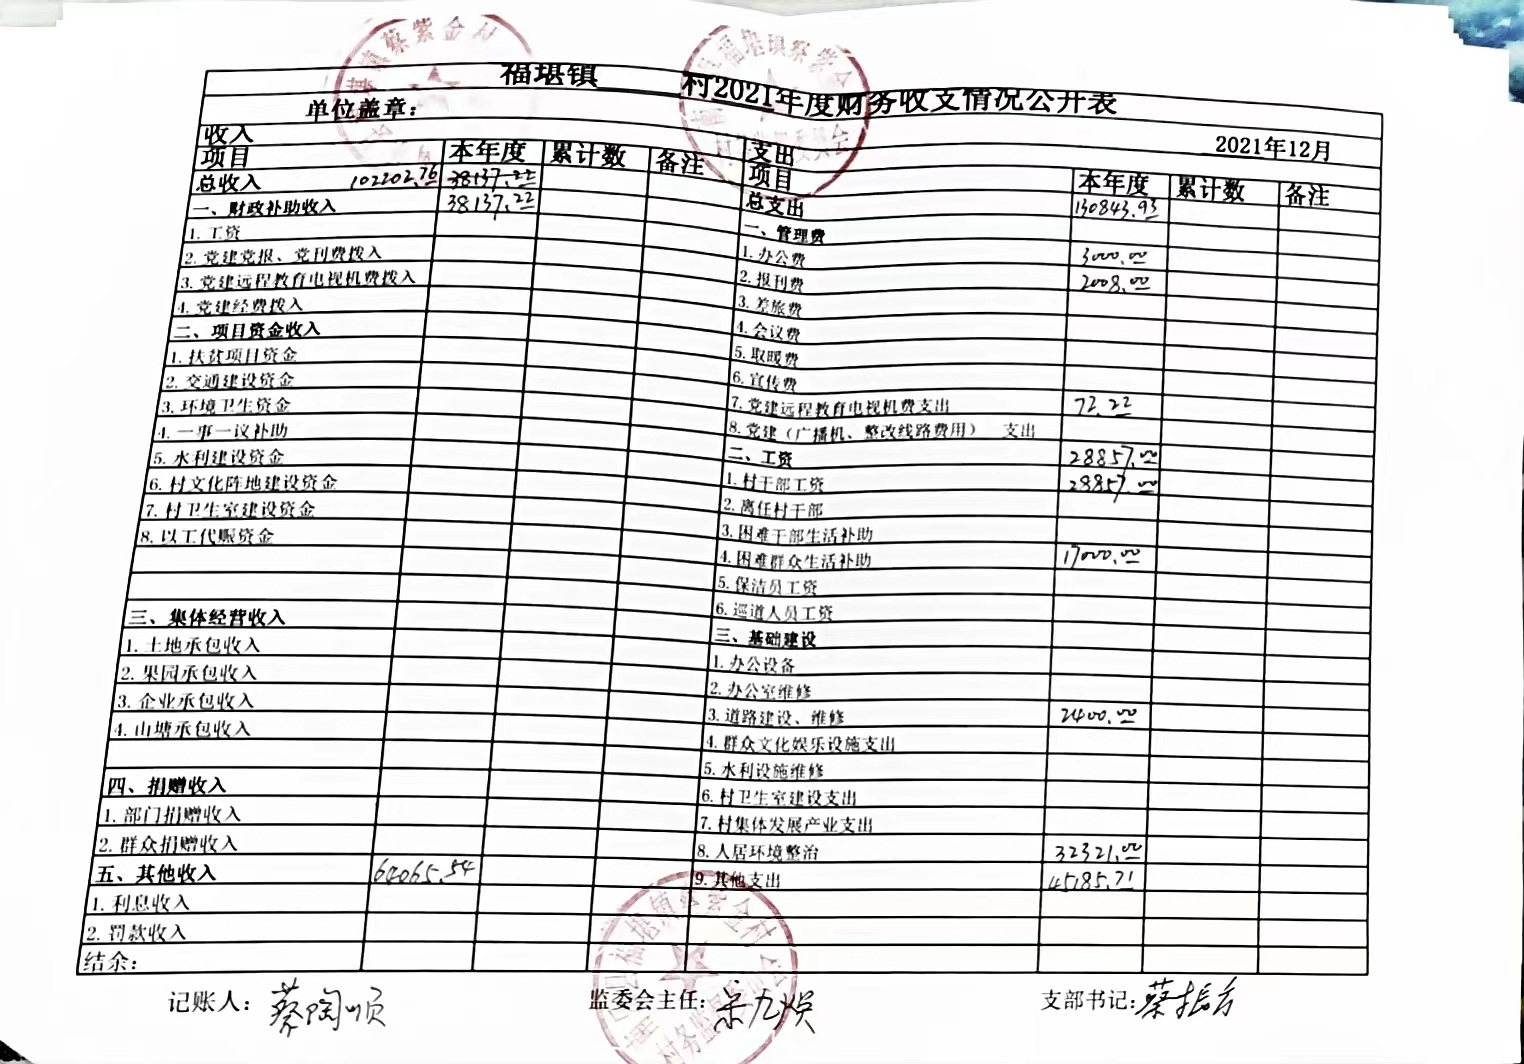 福堪镇 村2021年度财务收支情况公开表
单位盖章：
2021年12月
收入 支出
项目 本年度 累计数 备注 项目 本年度 累计数 备注
总收入 102202.76 38137.22 总支出 130843.93
一、财政补助收入 38137.22 一、管理费
1. 工资 1. 办公费 3000.00
2. 党建党报、党刊费拨入 2. 报刊费 2008.00
3. 党建远程教育电视机费拨入 3. 差旅费
4. 党建经费拨入 4. 会议费
二、项目资金收入 5. 取暖费
1. 扶贫项目资金 6. 宣传费
2. 交通建设资金 7. 党建远程教育电视机费支出 72.22
3. 环境卫生资金 8. 党建（广播机、整改线路费用） 支出
4. 一事一议补助 二、工资 28857.00
5. 水利建设资金 1. 村干部工资 28857.00
6. 村文化阵地建设资金 2. 离任村干部
7. 村卫生室建设资金 3. 困难干部生活补助
8. 以工代赈资金 4. 困难群众生活补助 17000.00
5. 保洁员工资
6. 巡道人员工资
三、集体经营收入 三、基础建设
1. 土地承包收入 1. 办公设备
2. 果园承包收入 2. 办公室维修
3. 企业承包收入 3. 道路建设、维修 2400.00
4. 山塘承包收入 4. 群众文化娱乐设施支出
5. 水利设施维修
四、捐赠收入 6. 村卫生室建设支出
1. 部门捐赠收入 7. 村集体发展产业支出
2. 群众捐赠收入 8. 人居环境整治 32321.00
五、其他收入 64065.54 9. 其他支出 45185.71
1. 利息收入
2. 罚款收入
结余：
记账人：蔡陶顺 监委会主任： 支部书记：蔡振